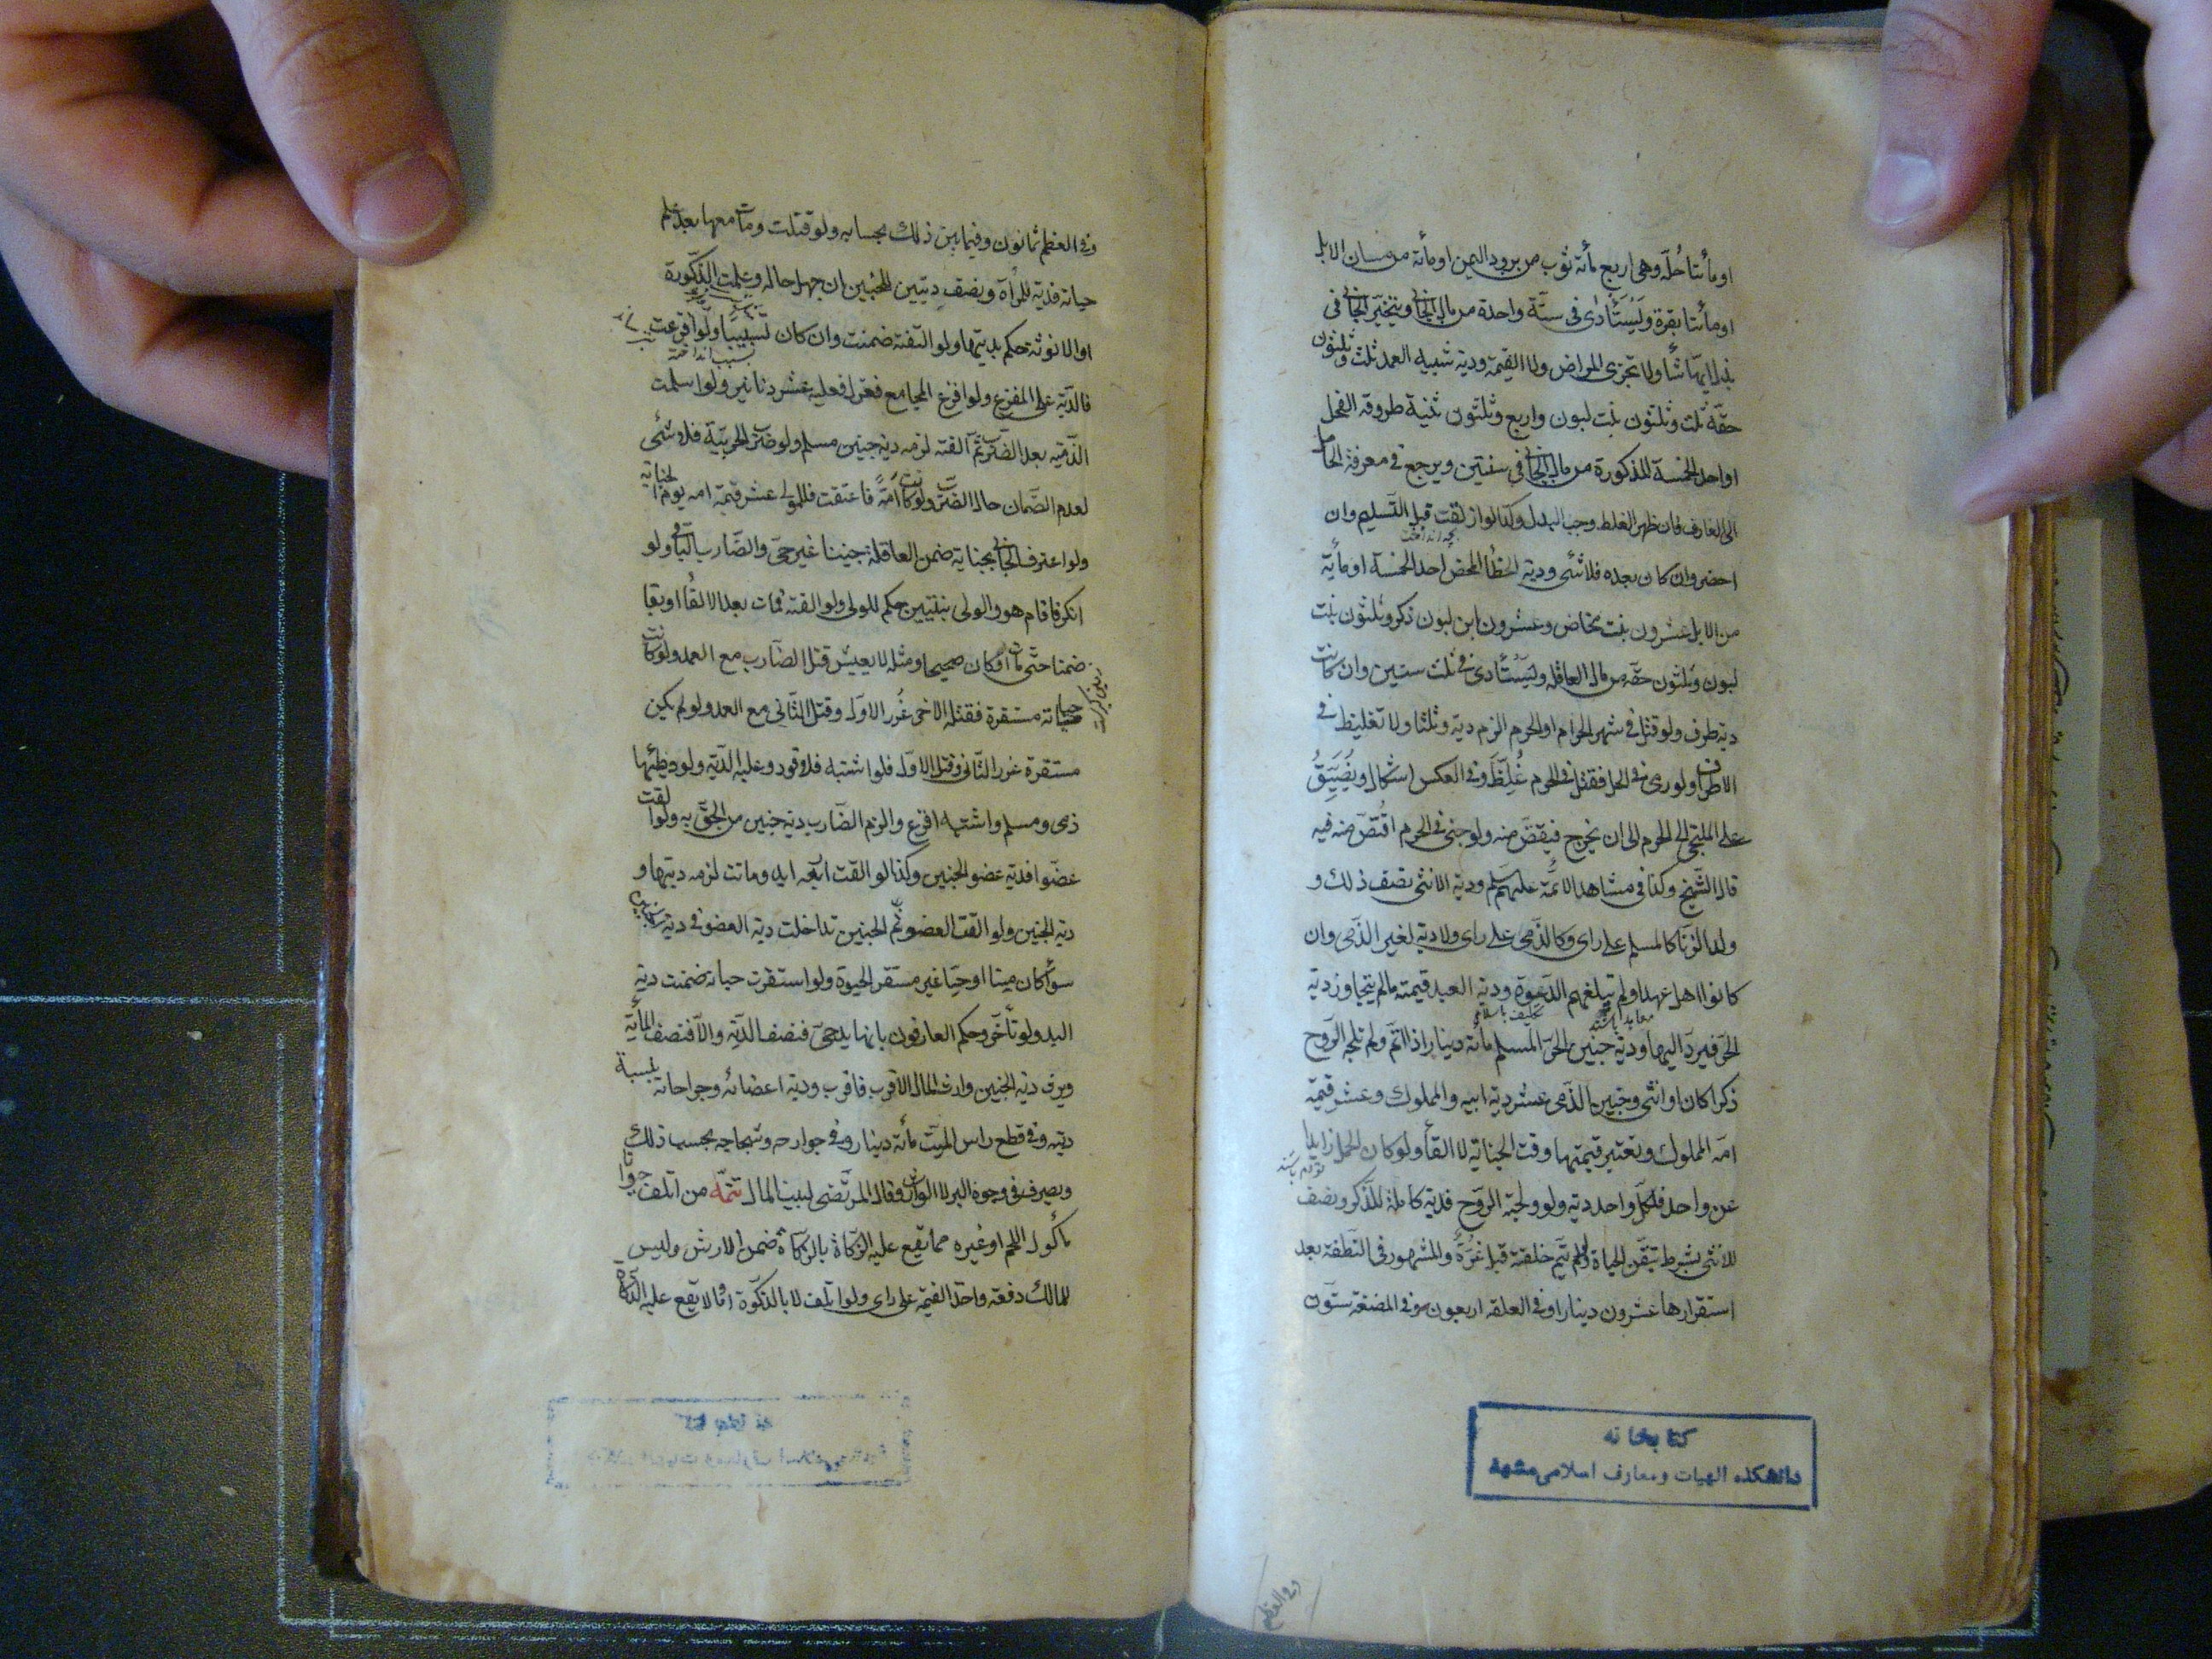 او مأتا حُلّة وهى اربع مأته ثوب من برود اليمن او مأته من مسان الابل
او مأتا بقرة ويُستأدى فى سنّة واحدة من مال الجانى ويتخيّر الجانى فى
بذل ايّها شأ ولا تجزى المراض ولا القيمة ودية شبيه العمد ثلث وثلثون
حقّة ثلث وثلثون بنت لبون واربع وثلثون ثنية طروقه الفحل
او احد الخمسة المذكورة من مال الجانى فى سنتين ويرجع فى معرفة الحامل
الى العارف فان ظهر الغلط وجب البدل وكذا لو ازلقت قبل التسليم وان
احضر وان كان بعده فلا شئى ودية الخطأ المحض احد الخمسة او مأية
من الابل عشرون بنت مخاض وعشرون ابن لبون ذكر وثلثون بنت
لبون وثلثون حقّه من مال العاقله ويُستأدى فى ثلث سنين وان كانت
دية طرف ولو قتل فى شهر الحرام او الحرم الزم دية وثلثا ولا تغليظ فى
الاطراف ولو رمى فى الحل فقتل فى الحرم غُلّظَ وفى العكس اشكال ويُضيّقُ
على الملتجى الى الحرم الى ان يخرج فيقتصّ منه ولو جنى فى الحرم اقتُصّ منه فيه
قال الشّيخ وكذا فى مشاهد الائمّة عليهم سلم ودية الانثى نصف ذلك و
ولد الزنا كالمسلم على راى وكالذّمى على راى ولا دية لغير الذّمى وان
كانوا اهل عهد او لم تبلغهم الدّعوة ودية العبد قيمته مالم يتجاوز دية
الحرّ فيردّ اليها ودية جنين الحرّ المسلم مأته دينار اذا اتمّ ولم تلجه الرّوح
ذكرا كان او انثى وجنين الذّمى عشر دية ابيه والمملوك وعشر قيمة
امّه المملوك وتعتبر قيمتها وقت الجناية لا القأ ولو كان الحمل زايدا
عن واحد فلكلّ واحد دية ولو ولجته الرّوح فدية كاملة للذّكر ونصف
للانثى بشرط تيقّن الحياة ولو لم يتم خلقته قيل غُرّةً والمشهور فى النّطفة بعد
استقرارها عشرون دينارا وفى العلقه اربعون وفى المضغة ستّون
وفى العظم
كتابخانه
دانشكده الهيات ومعارف اسلامى مشهد
وفى العظم ثمانون وفيما بين ذلك بحسابه ولو قتلت ومات معها بعد علم
حياته فدية للمرأة ونصف ديتين للجنين ان جهل حاله وعلمت الذّكورة
او الانوثة حكم بديتها ولو القته ضمنت وان كان تسبيبا ولو افزعت
فالدّية على المفزع ولو افزع المجامع فعزل فعليه عشر دنانير ولو اسلمت
الذّمّية بعد الضّرب ثمّ القته لزمه دية جنين مسلم ولو ضرب الحربيّة فلا شئى
لعدم الضّمان حال الضّرب ولو كانت امةً فاعتقت فللمولى عشر قيمة امه يوم الجناية
ولو اعترف الجانى بجناية ضمن العاقلة جنينا غير حىّ والضّارب الباقى ولو
انكر فاقام هو والولى بنيتين حكم للولى ولو القته فمات بعد الالقأ او بقى
ضمنا حتّى مات او كان صحيحا ومثله لا يعيش قتل الضّارب مع العمد ولو كانت
حياته مستقرة فقتله الاخر عُزّر الاول وقتل الثّانى مع العمد ولو لم يكن
مستقرة عزر الثّانى وقتل الاوّل فلو اشتبه فلا قود وعليه الدّية ولو وطئها
ذمى ومسلم واشتبه اقرع والزم الضّارب دية جنين من الحقّ به ولو القت
عضوا فدية عضو الجنين وكذا لو القت اربعه ايد وماتت لزمه ديتها و
دية الجنين ولو القت العضو ثمّ الجنين تداخلت دية العضو فى دية
سوأ كان ميتا او حيّا غير مستقر الحيوة ولو استقرت حياته ضمنت دية
اليد ولو تأخّر وحكم العارفون بانها يد حىّ فنصف الدّية والاّ فنصف المأية
ويرث دية الجنين وارث المال الاقرب فاقرب ودية اعضائه وجراحاته بنسبة
ديته وفى قطع راس الميّت مأته دينار وفى جوارحه وشجاجه بحسب ذلك
ويصرف فى وجوه البر لا الوارث وقال المرتضى لبيت المال تتمّة من اتلف حيوانا
مأكول اللحم او غيره مما تقع عليه الزّكاة بالزكاة ضمن الارش وليس
للمالك دفعه واخذ القيمة على راى ولو اتلف لا بالذكوة او ما لا يقع عليه الذكاة